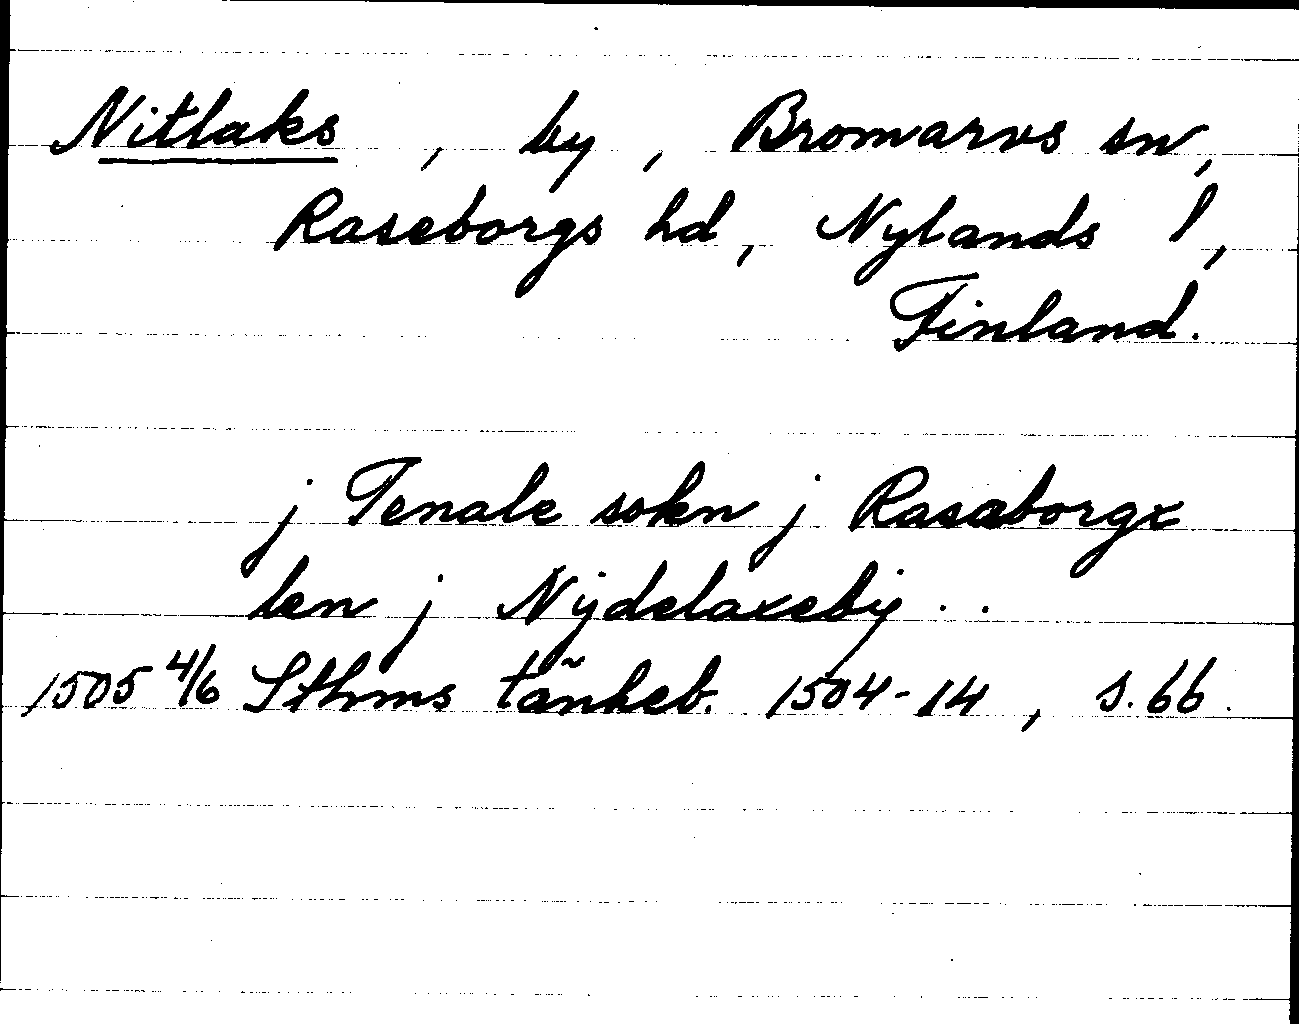 Nitlaks, by, Bromarvs sn,
Raseborgs hd, Nylands l,
Finland.
j Tenale sokn j Rasaborgx
len j Nijdelaxeby ..
1505 4/6 Sthms tänkeb. 1504-14, s. 66.